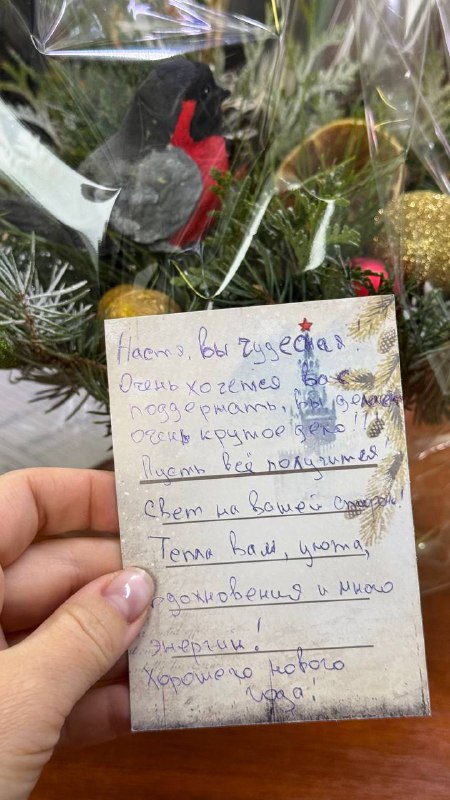 Настя, вы чудесная!
Очень хочется вас
поддержать, вы делаете
очень крутое дело!!
Пусть всё получится!
Свет на вашей стороне!
Тепла вам, уюта,
вдохновения и много
энергии!
Хорошего нового
года!